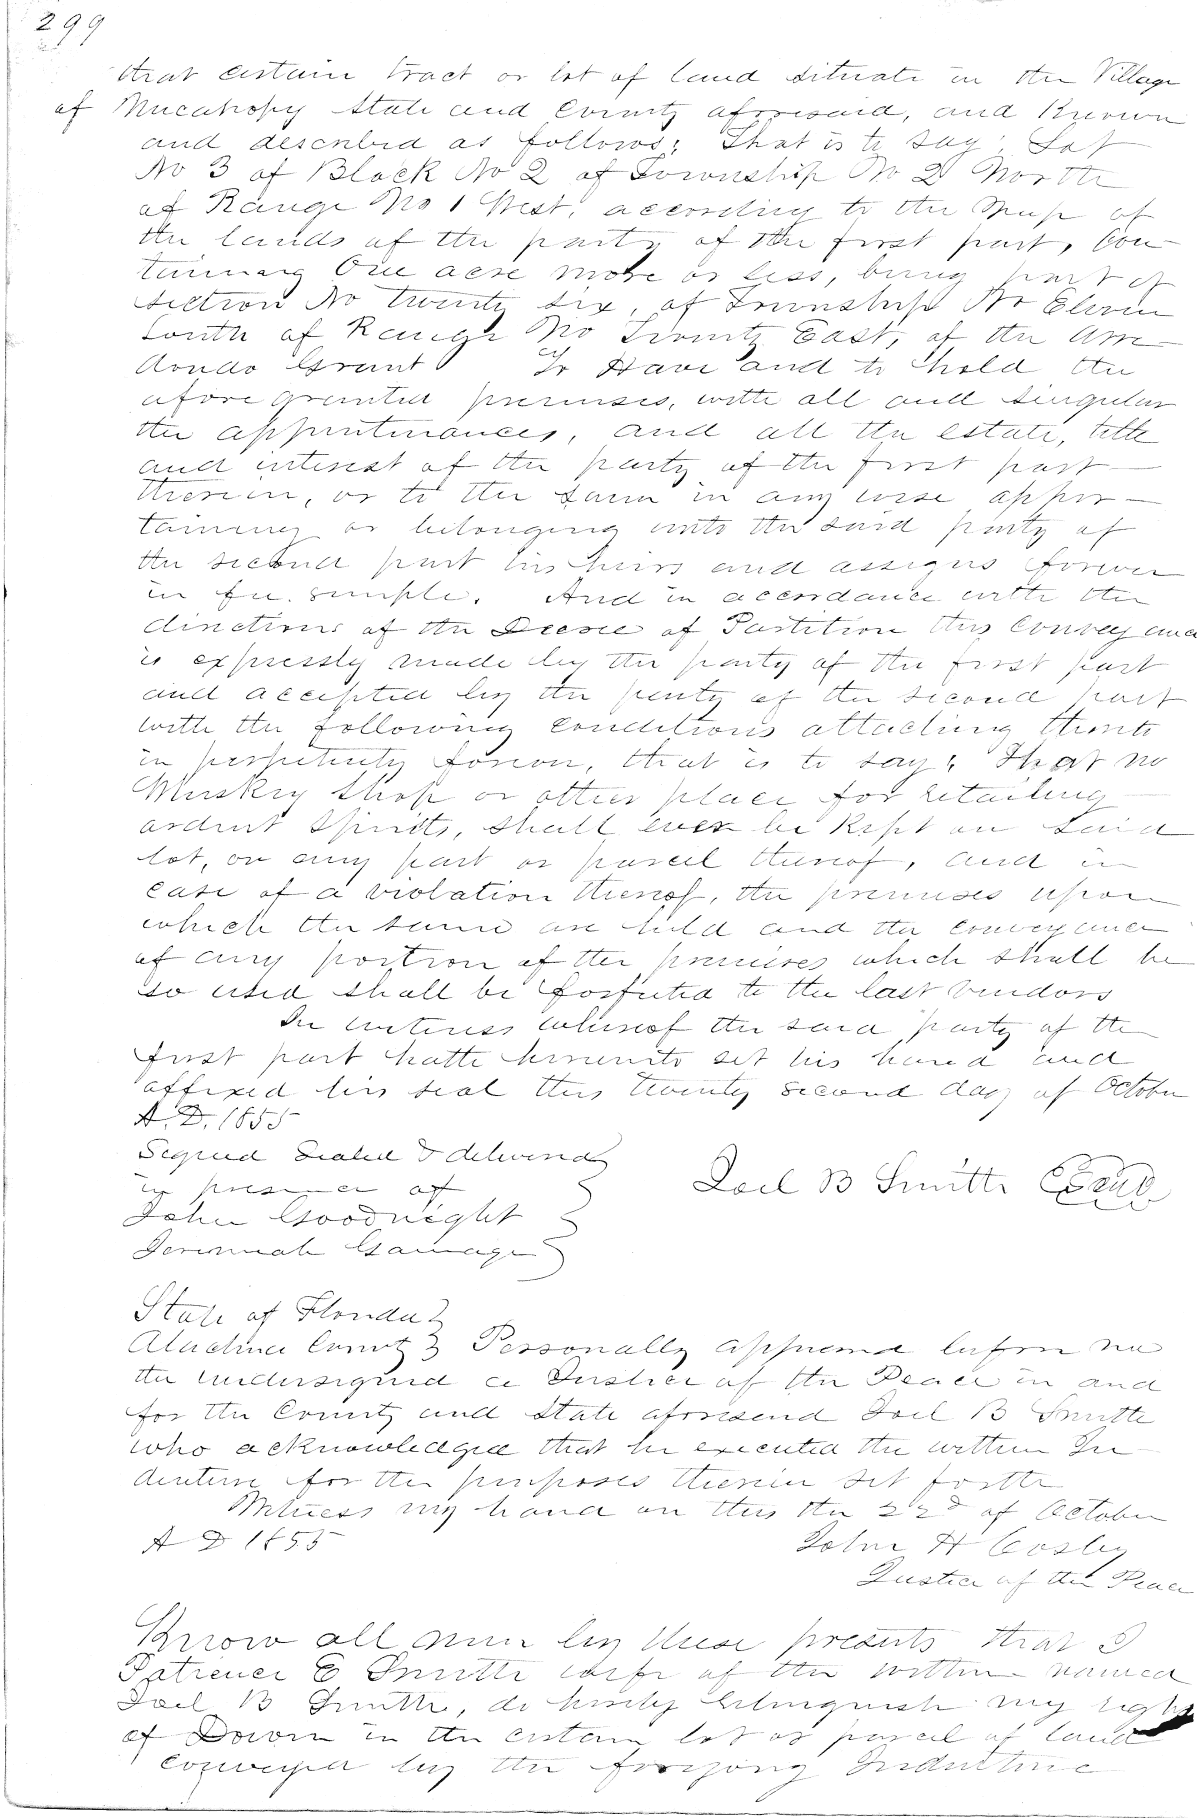 299
that certain tract or lot of land situate in the Village
of Micanopy State and County aforesaid, and Known
and described as follows; That is to say; Lot
No 3 of Block No 2 of Township No 2 North
of Range No 1 West, according to the Map of
the lands of the party of the first part, Con-
taining One acre more or less, being part of
section No twenty six, of Township No Eleven
South of Range No Twenty East, of the Arre-
dondo Grant To Have and to hold the
afore granted premises, with all and singular
the appurtinances, and all the estate, title
and interest of the party of the first part
therein, or to the same in any wise apper-
taining or belonging unto the said party of
the second part his heirs and assigns forever
in fee simple. And in accordance with the
directions of the Decree of Partition this Conveyance
is expressly made by the party of the first part
and accepted by the party of the second part
with the following conditions attaching thereto
in perpetuity forever, that is to say; That no
Whiskey Shop or other place for retailing
ardent spirits, shall ever be Kept on said
lot, or any part or parcel thereof, and in
case of a violation thereof, the premises upon
which the same are held and the conveyance
of any portion of the premises which shall be
so used shall be forfeited to the last vendors
In witness whereof the said party of the
first part hath hereunto set his hand and
affixed his seal this twenty second day of October
A.D. 1855
Signed Sealed & delivered
in presence of
Joel B Smith Seal
John Goodnight
Jeremiah Gamage
State of Florida
Alachua County Personally appeared before me
the undersigned a Justice of the Peace in and
for the County and State aforesaid Joel B Smith
who acknowledged that he executed the within In-
denture for the purposes therein set forth
Witness my hand on this the 22d of October
A D 1855
John H Cosby
Justice of the Peace
Know all men by these presents that I
Patience E Smith wife of the within named
Joel B Smith, do hereby relinquish my right
of Dower in the certain lot or parcel of land
conveyed by the foregoing Indenture